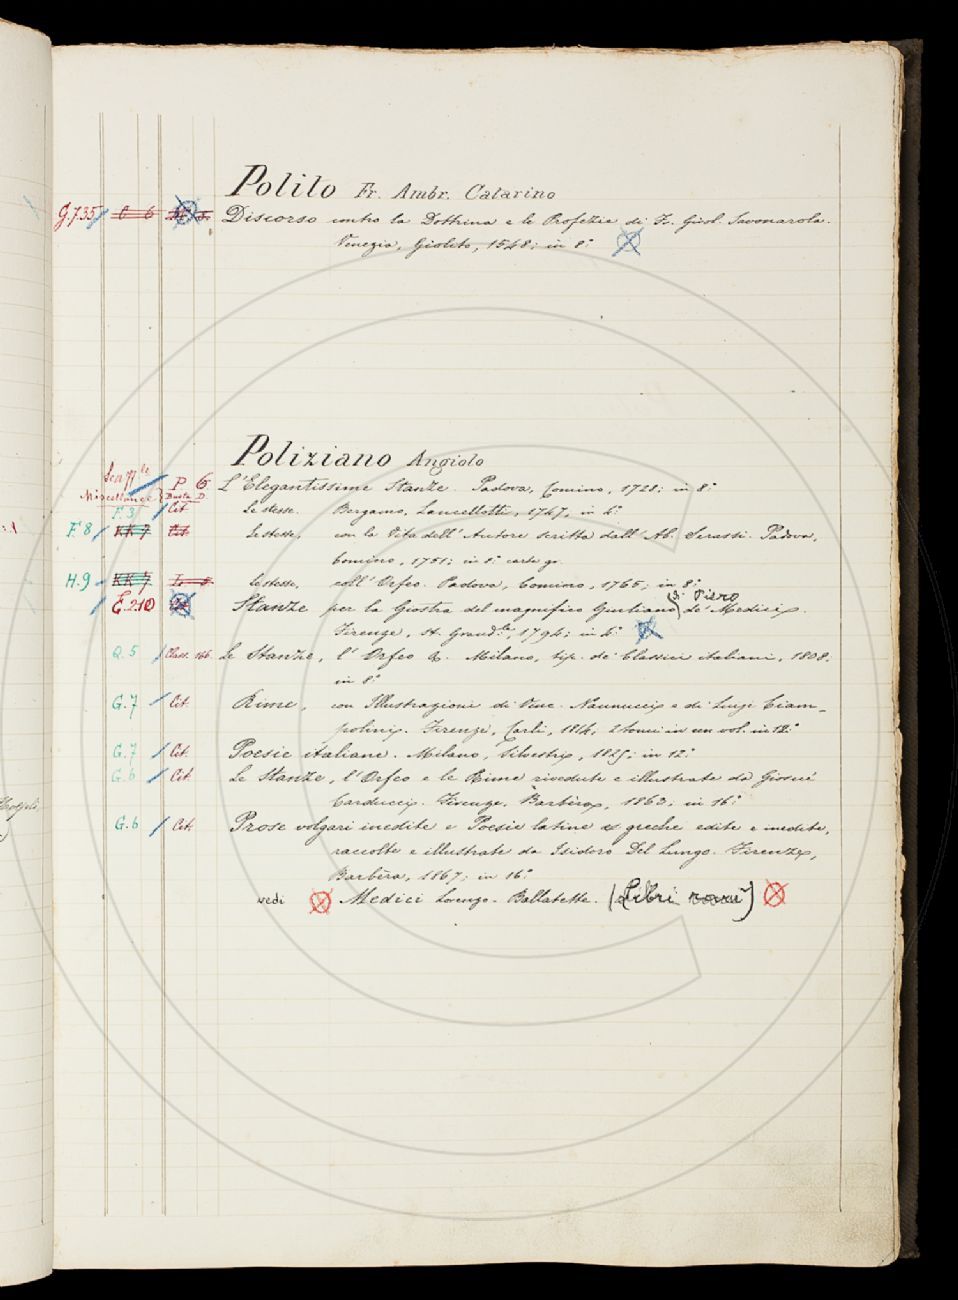 Polito Fr. Ambr. Catarino
G.7.35 C 6
Discorso contro la Dottrina e le Profetie di F. Girol. Savonarola.
Venezia, Giolito, 1548; in 8.°
Poliziano Angiolo
P 6 L'Elegantissime Stanze. Padova, Comino, 1728; in 8.°
Miscellanee Busta D.
F.3 Cit. Le stesse. Bergamo, Lancellotti, 1747, in 4.°
F.8 KK 7 Cit. Le stesse, con la Vita dell'Autore scritta dall'Ab. Serassi. Padova,
Comino, 1751; in 8.° carta gr.
H.9 Le stesse, coll'Orfeo. Padova, Comino, 1765; in 8.°
di Piero
E.210 Stanze per la Giostra del magnifico Giuliano de' Medici.
Firenze, St. Grand.le, 1794; in 4.°
Q.5 Class. 166 Le Stanze, l'Orfeo &. Milano, tip. de' Classici italiani, 1808.
in 8.°
G.7 Cit. Rime, con Illustrazioni di Vinc. Nannucci e di Luigi Ciam-
polini. Firenze, Carli, 1814; 2 tomi in un vol. in 12.°
G.7 Cit. Poesie italiane. Milano, Silvestri, 1825; in 12.°
G.6 Cit. Le Stanze, l'Orfeo e le Rime rivedute e illustrate da Giosuè
Carducci. Firenze, Barbèra, 1863; in 16.°
G.6 Cit. Prose volgari inedite e Poesie latine e greche edite e inedite,
raccolte e illustrate da Isidoro Del Lungo. Firenze,
Barbèra, 1867; in 16.°
vedi Medici Lorenzo. Ballatette. (Libri rari)